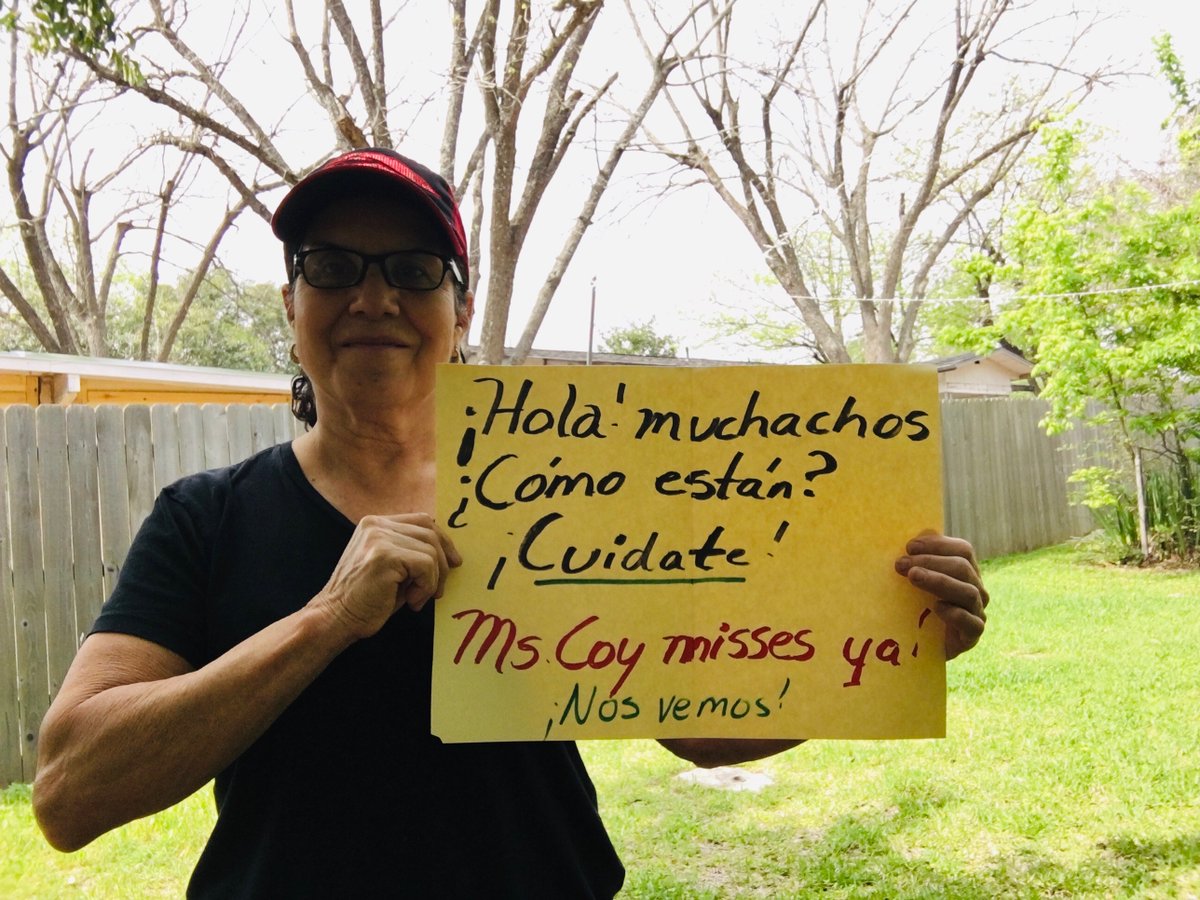 ¡Hola! muchachos
¿Cómo están?
¡Cuidate!
Ms. Coy misses ya!
¡Nos vemos!